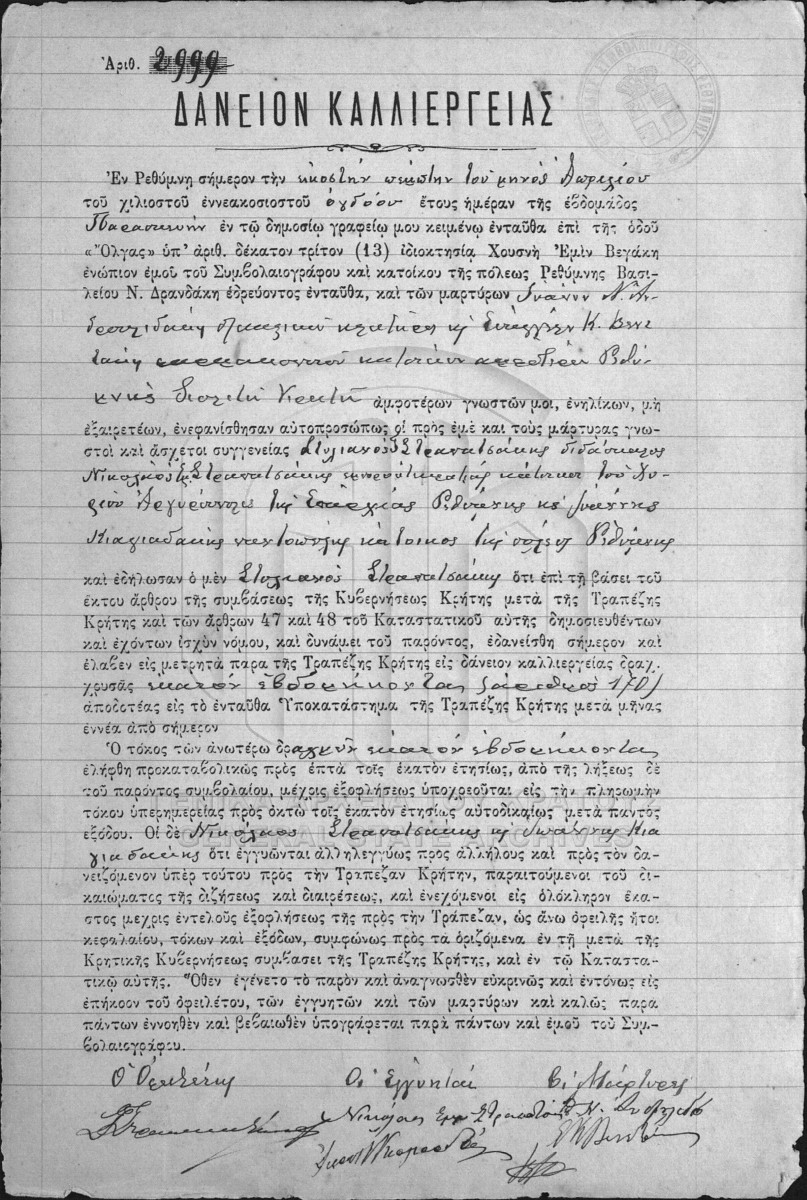 Ἀριθ. 2999
ΔΑΝΕΙΟΝ ΚΑΛΛΙΕΡΓΕΙΑΣ
Ἐν Ρεθύμνῃ σήμερον τὴν εἰκοστὴν πέμπτην τοῦ μηνὸς Ἀπριλίου
τοῦ χιλιοστοῦ ἐννεακοσιοστοῦ ὀγδόου ἔτους ἡμέραν τῆς ἑβδομάδος
Παρασκευὴν ἐν τῷ δημοσίῳ γραφείῳ μου κειμένῳ ἐνταῦθα ἐπὶ τῆς ὁδοῦ
«Ὄλγας» ὑπ’ ἀριθ. δέκατον τρίτον (13) ἰδιοκτησία Χουσνῆ Ἐμὶν Βεγάκη
ἐνώπιον ἐμοῦ τοῦ Συμβολαιογράφου καὶ κατοίκου τῆς πόλεως Ρεθύμνης Βασι-
λείου Ν. Δρανδάκη ἑδρεύοντος ἐνταῦθα, καὶ τῶν μαρτύρων Ἰωάνν. Ν. Ἀν-
δρουλιδάκη κλητῆρος Κ. Βενι-
κατοίκων Ρεθύ-
μνης ἀμφοτέρων γνωστῶν μοι, ἐνηλίκων, μὴ
ἐξαιρετέων, ἐνεφανίσθησαν αὐτοπροσώπως οἱ πρὸς ἐμὲ και τοὺς μάρτυρας γνω-
στοὶ καὶ ἄσχετοι συγγενείας Στυλιανὸς Στραπατσάκης διδάσκαλος
Νικόλαος Ἐμ. Στραπατσάκης κάτοικοι τοῦ Χω-
ρίου Ἀργυρούπολις τῆς Ἐπαρχίας Ρεθύμνης κ Ἰωάννης
Κιαγιαδάκης παντοπώλης κάτοικος τῆς πόλεως Ρεθύμνης
καὶ ἐδήλωσαν ὁ μὲν Στυλιανὸς Στραπατσάκης ὅτι ἐπὶ τῇ βάσει τοῦ
ἕκτου ἄρθρου τῆς συμβάσεως τῆς Κυβερνήσεως Κρήτης μετὰ τῆς Τραπέζης
Κρήτης καὶ τῶν ἄρθρων 47 καὶ 48 τοῦ Καταστατικοῦ αὐτῆς δημοσιευθέντων
καὶ ἐχόντων ἰσχὺν νόμου, καὶ δυνάμει τοῦ παρόντος, ἐδανείσθη σήμερον καὶ
ἔλαβεν εἰς μετρητὰ παρα τῆς Τραπέζης Κρήτης εἰς δάνειον καλλιεργείας δραχ.
χρυσᾶς ἑκατὸν ἑβδομήκοντα ἀριθμὸς 170)
ἀποδοτέας εἰς τὸ ἐνταῦθα Ὑποκατάστημα τῆς Τραπέζης Κρήτης μετὰ μῆνας
ἐννέα ἀπὸ σήμερον
Ὁ τόκος τῶν ἀνωτέρω δραχμῶν ἑκατὸν ἑβδομήκοντα
ἐλήφθη προκαταβολικῶς πρὸς ἑπτὰ τοῖς ἑκατὸν ἐτησίως, ἀπὸ τῆς λήξεως δὲ
τοῦ παρόντος συμβολαίου, μέχρις ἐξοφλήσεως ὑποχρεοῦται εἰς τὴν πληρωμὴν
τόκου ὑπερημερείας πρὸς ὀκτὼ τοῖς ἑκατὸν ἐτησίως αὐτοδικαίως μετὰ παντὸς
ἐξόδου. Οἱ δὲ Νικόλαος Στραπατσάκης κ Ἰωάννης Κια
γιαδάκης ὅτι ἐγγυῶνται ἀλληλεγγύως πρὸς ἀλλήλους καὶ πρὸς τὸν δα-
νειζόμενον ὑπὲρ τούτου πρὸς τὴν Τραπεζαν Κρήτην, παραιτούμενοι τοῦ δι-
καιώματος τῆς διζήσεως καὶ διαιρέσεως, καὶ ἐνεχόμενοι εἰς ὁλόκληρον ἕκα-
στος μεχρις ἐντελοῦς ἐξοφλήσεως τῆς πρὸς τὴν Τράπεζαν, ὡς ἄνω ὀφειλῆς ἤτοι
κεφαλαίου, τόκων καὶ ἐξόδων, συμφώνως πρὸς τὰ ὁριζόμενα ἐν τῇ μετὰ τῆς
Κρητικῆς Κυβερνήσεως συμβασει τῆς Τραπέζης Κρήτης, καὶ ἐν τῷ Καταστα-
τικῷ αὐτῆς. Ὅθεν ἐγένετο τὸ παρὸν καὶ ἀναγνωσθὲν εὐκρινῶς καὶ ἐντόνως εἰς
ἐπήκοον τοῦ ὀφειλέτου, τῶν ἐγγυητῶν καὶ τῶν μαρτύρων καὶ καλῶς παρα
πάντων ἐννοηθὲν καὶ βεβαιωθὲν ὑπογράφεται παρὰ πάντων καὶ ἐμοῦ τοῦ Συμ-
βολαιογράφου.
Ὁ Ὀφειλέτης Οἱ Ἐγγυηταί Οἱ Μάρτυρες
Νικόλαος Εμ Στραπατσάκης
GENERAL STATE ARCHIVES